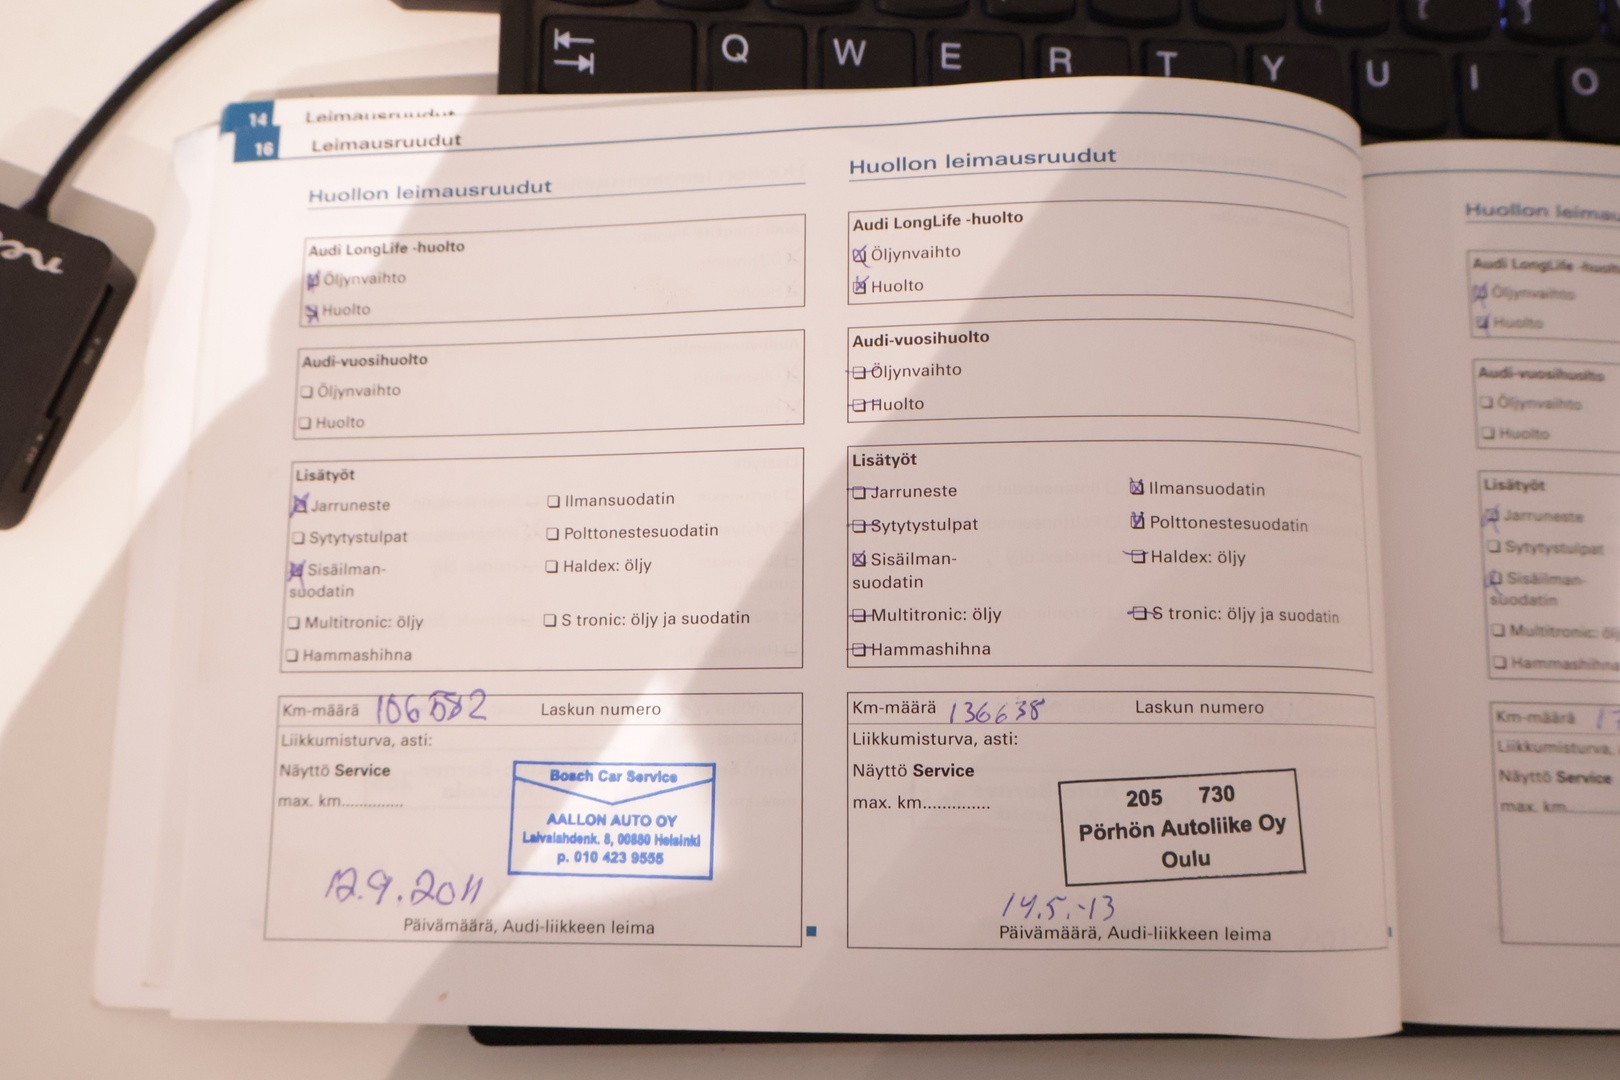 Q W E R T Y U I O
14 Leimausruudut
16 Leimausruudut
Huollon leimausruudut
Audi LongLife -huolto
Öljynvaihto
Huolto
Audi-vuosihuolto
Öljynvaihto
Huolto
Lisätyöt
Jarruneste
Ilmansuodatin
Sytytystulpat
Polttonestesuodatin
Sisäilman-
suodatin
Haldex: öljy
Multitronic: öljy
S tronic: öljy ja suodatin
Hammashihna
Km-määrä
Laskun numero
Liikkumisturva, asti:
Näyttö Service
max. km..............
Bosch Car Service
AALLON AUTO OY
Laivalahdenk. 8, 00880 Helsinki
p. 010 423 9555
12.9.2011
Päivämäärä, Audi-liikkeen leima
Huollon leimausruudut
Audi LongLife -huolto
Öljynvaihto
Huolto
Audi-vuosihuolto
Öljynvaihto
Huolto
Lisätyöt
Jarruneste
Ilmansuodatin
Sytytystulpat
Polttonestesuodatin
Sisäilman-
suodatin
Haldex: öljy
Multitronic: öljy
S tronic: öljy ja suodatin
Hammashihna
Km-määrä 136638
Laskun numero
Liikkumisturva, asti:
Näyttö Service
max. km..............
205 730
Pörhön Autoliike Oy
Oulu
14.5.-13
Päivämäärä, Audi-liikkeen leima
Huollon
Audi LongLife
Öljynvaihto
Huolto
Audi-vuosihuolto
Öljynvaihto
Huolto
Lisätyöt
Jarruneste
Sytytystulpat
Sisäilman-
suodatin
Multitronic:
Hammashihna
Km-määrä
Liikkumisturva,
Näyttö Service
max. km